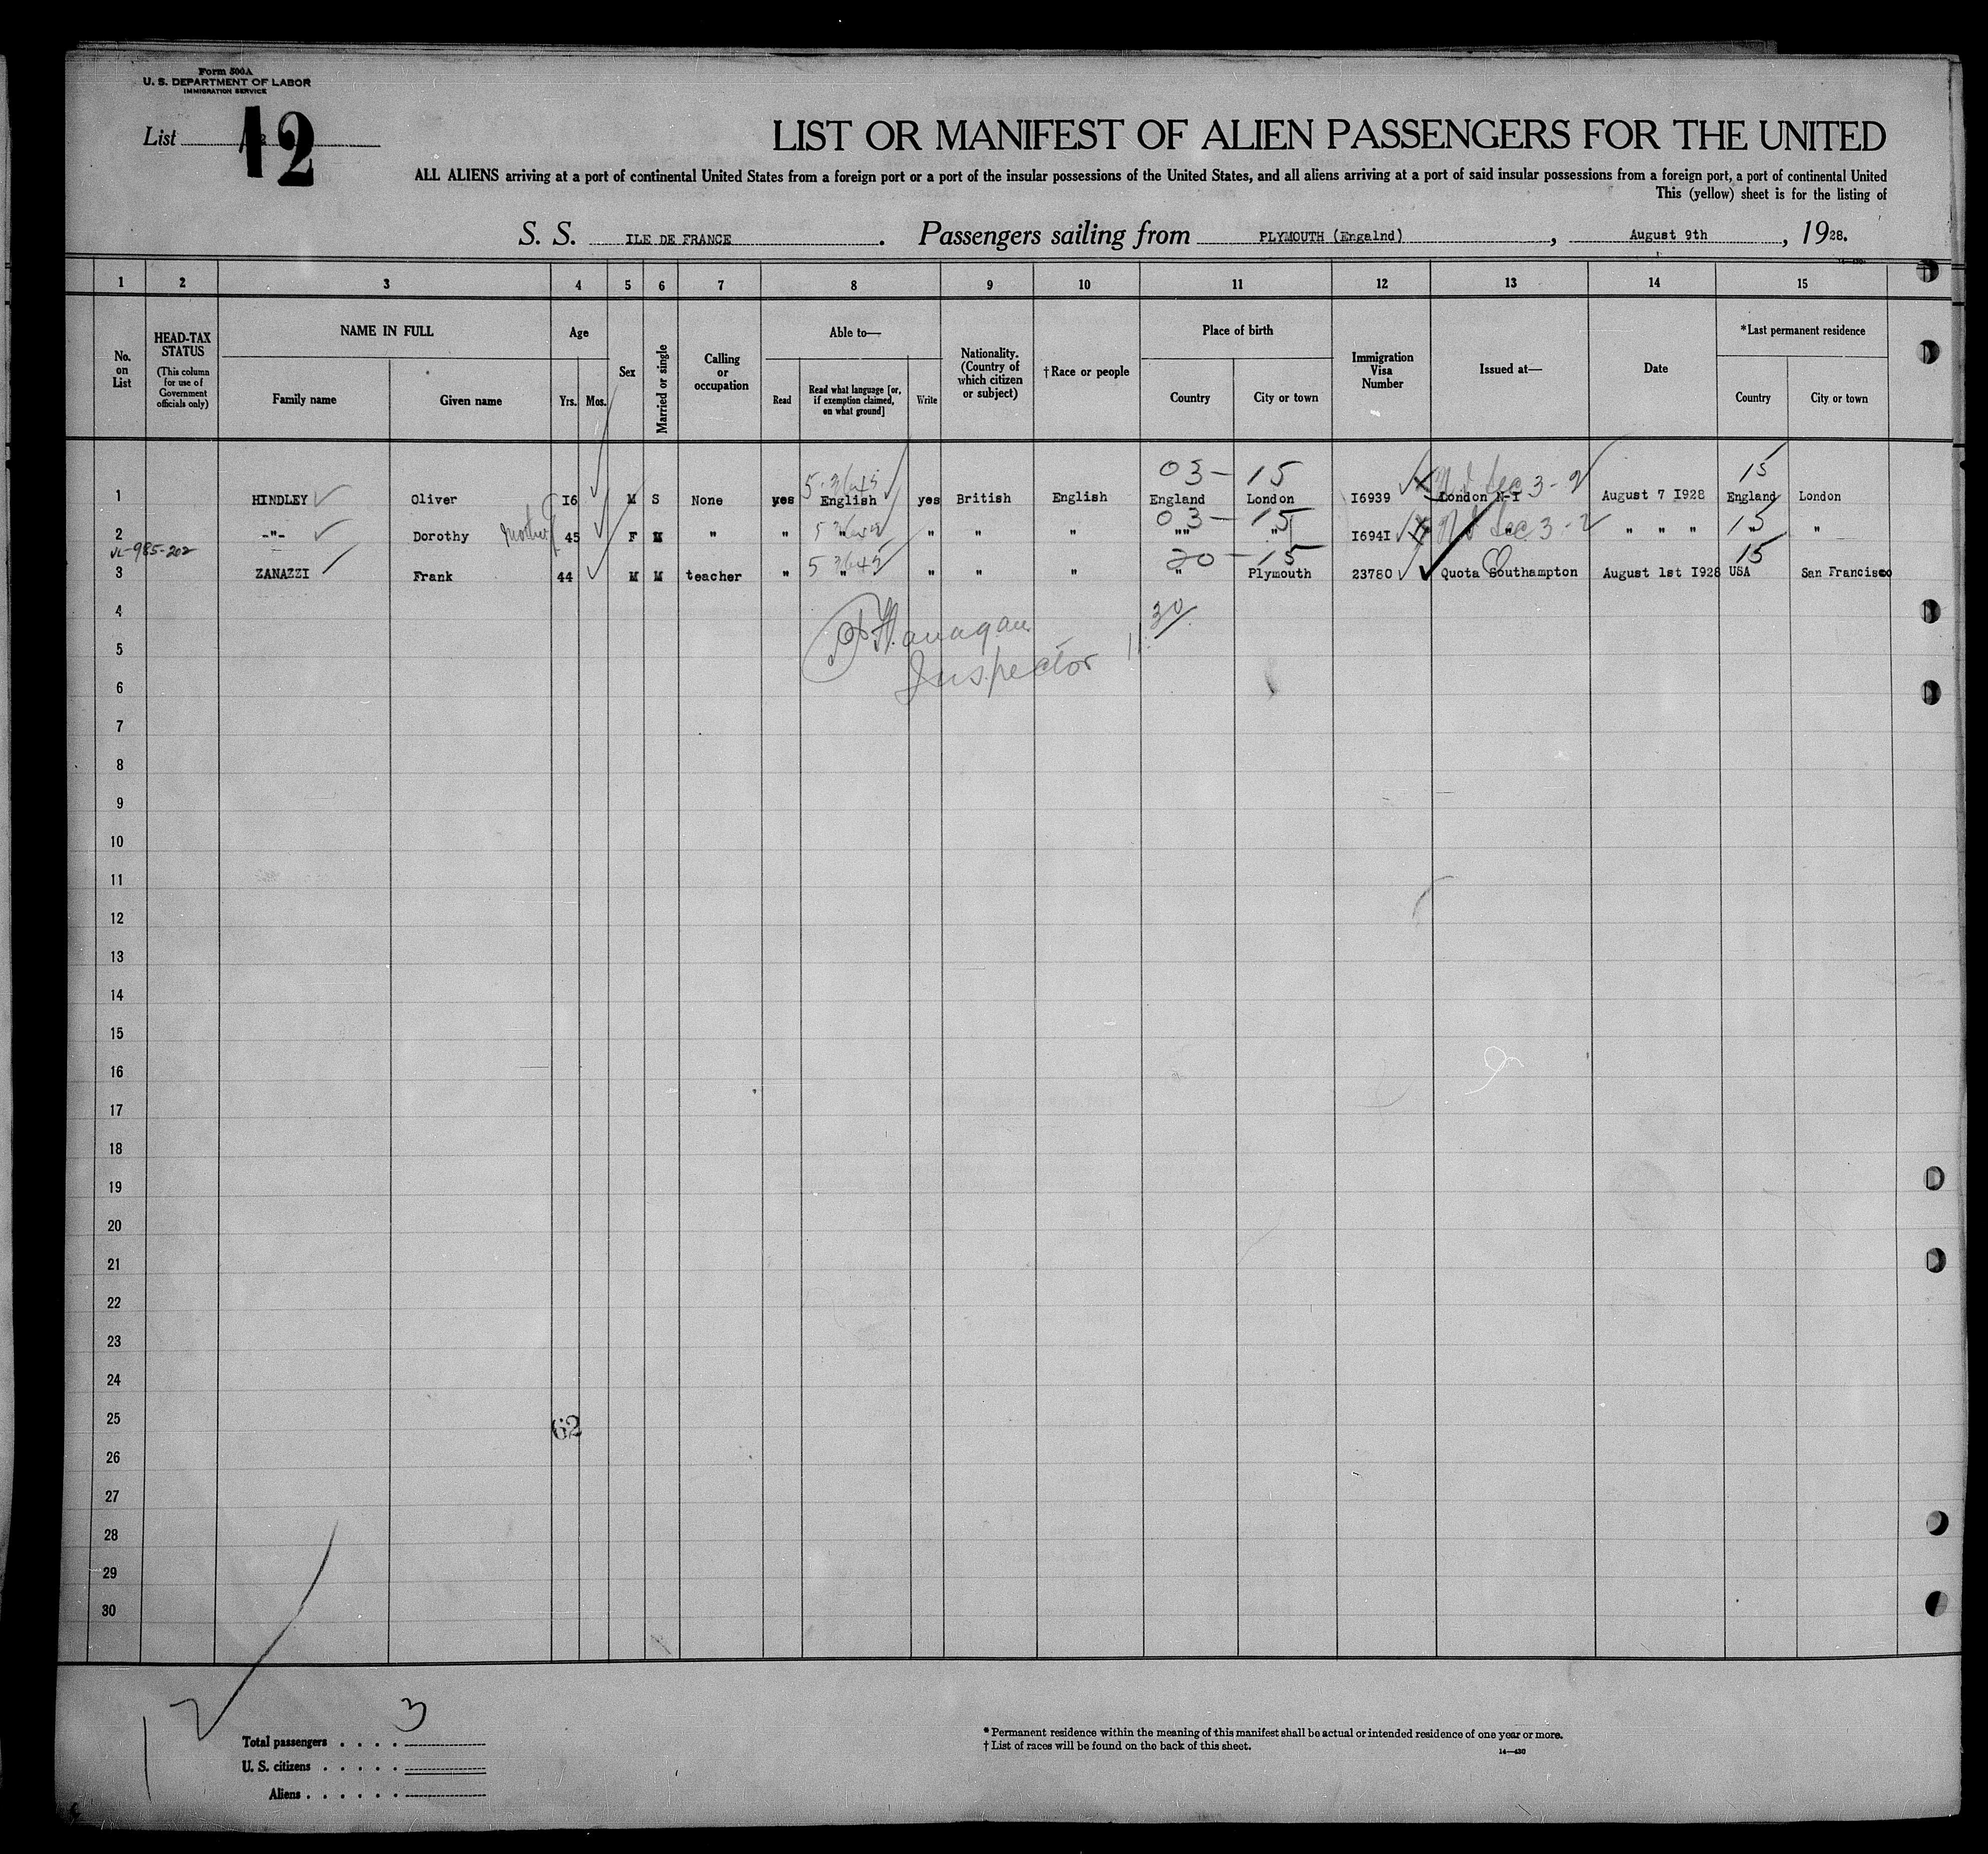 Form 500A
U. S. DEPARTMENT OF LABOR
IMMIGRATION SERVICE
List 12
LIST OR MANIFEST OF ALIEN PASSENGERS FOR THE UNITED
ALL ALIENS arriving at a port of continental United States from a foreign port or a port of the insular possessions of the United States, and all aliens arriving at a port of said insular possessions from a foreign port, a port of continental United
This (yellow) sheet is for the listing of
S. S. ILE DE FRANCE . Passengers sailing from PLYMOUTH (Engalnd) , August 9th , 1928.
1 2 3 4 5 6 7 8 9 10 11 12 13 14 15
No. on List
HEAD-TAX STATUS
(This column for use of Government officials only)
NAME IN FULL
Family name
Given name
Age
Yrs.
Mos.
Sex
Married or single
Calling or occupation
Able to—
Read
Read what language [or, if exemption claimed, on what ground]
Write
Nationality. (Country of which citizen or subject)
† Race or people
Place of birth
Country
City or town
Immigration Visa Number
Issued at—
Date
*Last permanent residence
Country
City or town
03 - 15 15
1 HINDLEY Oliver I6 M S None yes English yes British English England London I6939 London N-I August 7 I928 England London
03 - 15 15
2 -"- Dorothy mother 45 F M " " " " " " "" " I694I " " " " " "
985-202 20 - 15 15
3 ZANAZZI Frank 44 M M teacher " " " " " " Plymouth 23780 Quota Southampton August 1st I928 USA San Francisco
4
Flanagan 30
5
Inspector 11
6
7
8
9
10
11
12
13
14
15
16
17
18
19
20
21
22
23
24
25
62
26
27
28
29
30
3
Total passengers . . . .
U. S. citizens . . . . .
Aliens . . . . . .
* Permanent residence within the meaning of this manifest shall be actual or intended residence of one year or more.
† List of races will be found on the back of this sheet.
14—430